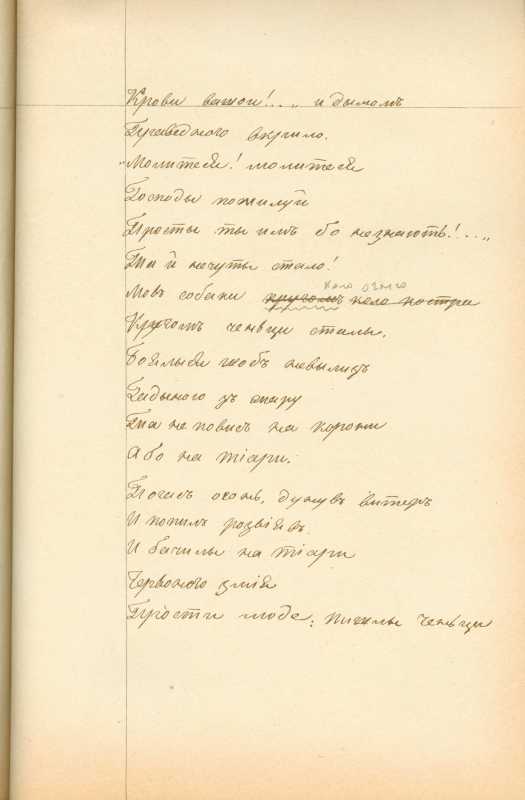 Крови вашои!.... и дымомъ
Праведного вкрило.
„Молитеся! молитеся
Господы помилуй
Просты ты имъ бо незнають!....„
Та й нечуты стало!
Мовъ собаки кругомъ коло костра
коло огнего
Кругомъ ченьци сталы,
Боялыся щобъ невылизъ
Гадыною зъ жару
Та неповисъ на корони
Або на тіари.
Погасъ огонь, дунувъ витеръ
И попилъ розвіявъ.
И бачилы на тіари
Червоного змія
Прости люде; пишлы ченьци